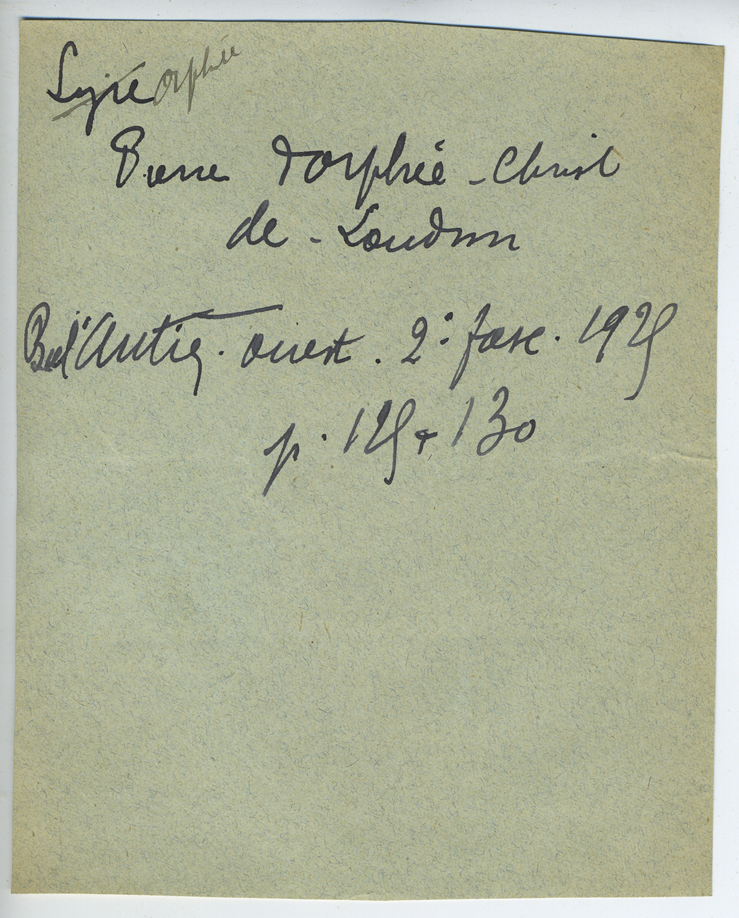 Lyre Orphée
Pierre d'orphée - Christ
de - Loudun
Bul Antiq. ouest. 2e fasc. 1925
p. 125 & 130